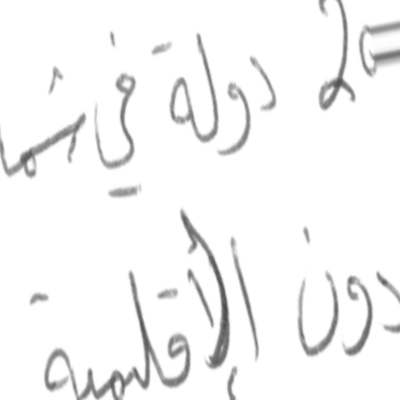 2 دولة في شما
دون الإقليمية